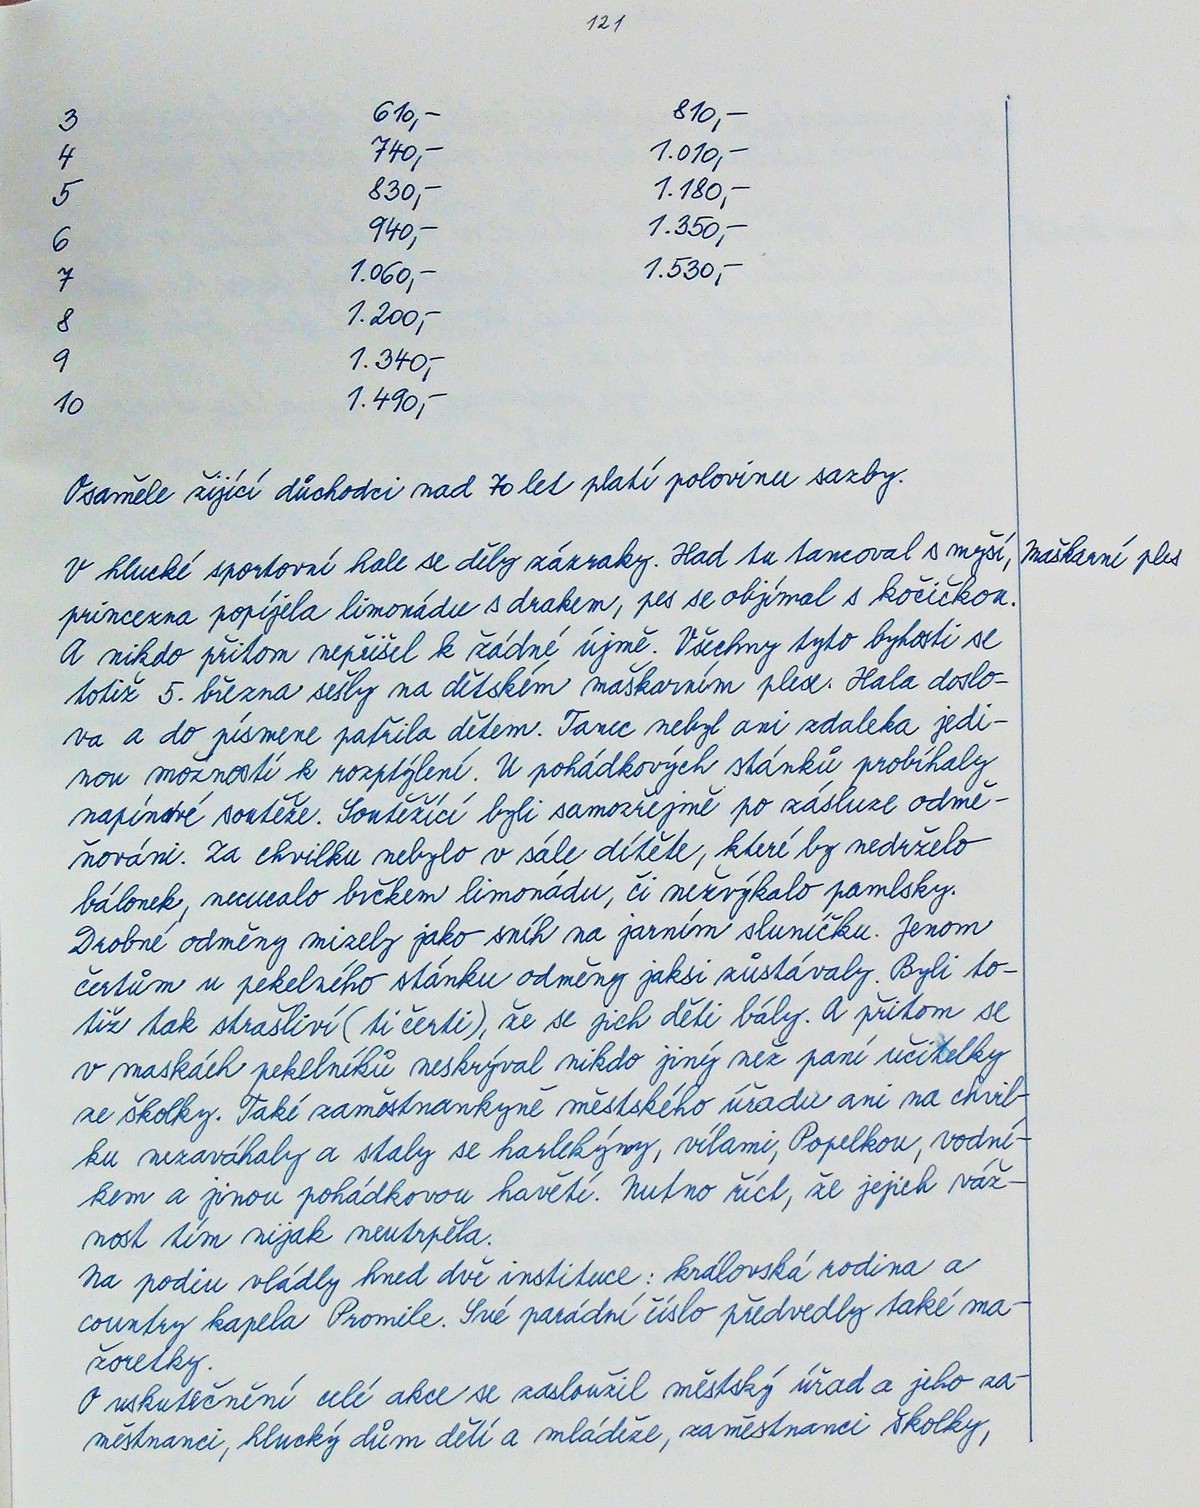 121
3 610,- 810,-
4 740,- 1.010,-
5 830,- 1.180,-
6 940,- 1.350,-
7 1.060,- 1.530,-
8 1.200,-
9 1.340,-
10 1.490,-
Osaměle žijící důchodci nad 70 let platí polovinu sazby.
V hlucké sportovní hale se děly zázraky. Had tu tancoval s myší, Maškarní ples
princezna popíjela limonádu s drakem, pes se objímal s kočičkou.
A nikdo přitom nepřišel k žádné újmě. Všechny tyto bytosti se
totiž 5. března sešly na dětském maškarním plese. Hala doslo-
va a do písmene patřila dětem. Tanec nebyl ani zdaleka jedi-
nou možností k rozptýlení. U pohádkových stánků probíhaly
napínavé soutěže. Soutěžící byli samozřejmě po zásluze odmě-
ňováni. Za chvilku nebylo v sále dítěte, které by nedrželo
bálonek, necucalo brčkem limonádu, či nežvýkalo pamlsky.
Drobné odměny mizely jako sníh na jarním sluníčku. Jenom
čertům u pekelného stánku odměny jaksi zůstávaly. Byli to-
tiž tak strašliví (ti čerti), že se jich děti bály. A přitom se
v maskách pekelníků neskrýval nikdo jiný než paní učitelky
ze školky. Také zaměstnankyně městského úřadu ani na chvil-
ku nezaváhaly a staly se harlekýny, vílami, Popelkou, vodní-
kem a jinou pohádkovou havětí. Nutno říct, že jejich váž-
nost tím nijak neutrpěla.
Na podiu vládly hned dvě instituce: královská rodina a
country kapela Promile. Své parádní číslo předvedly také ma-
žoretky.
O uskutečnění celé akce se zasloužil městský úřad a jeho za-
městnanci, hlucký dům dětí a mládeže, zaměstnanci školky,